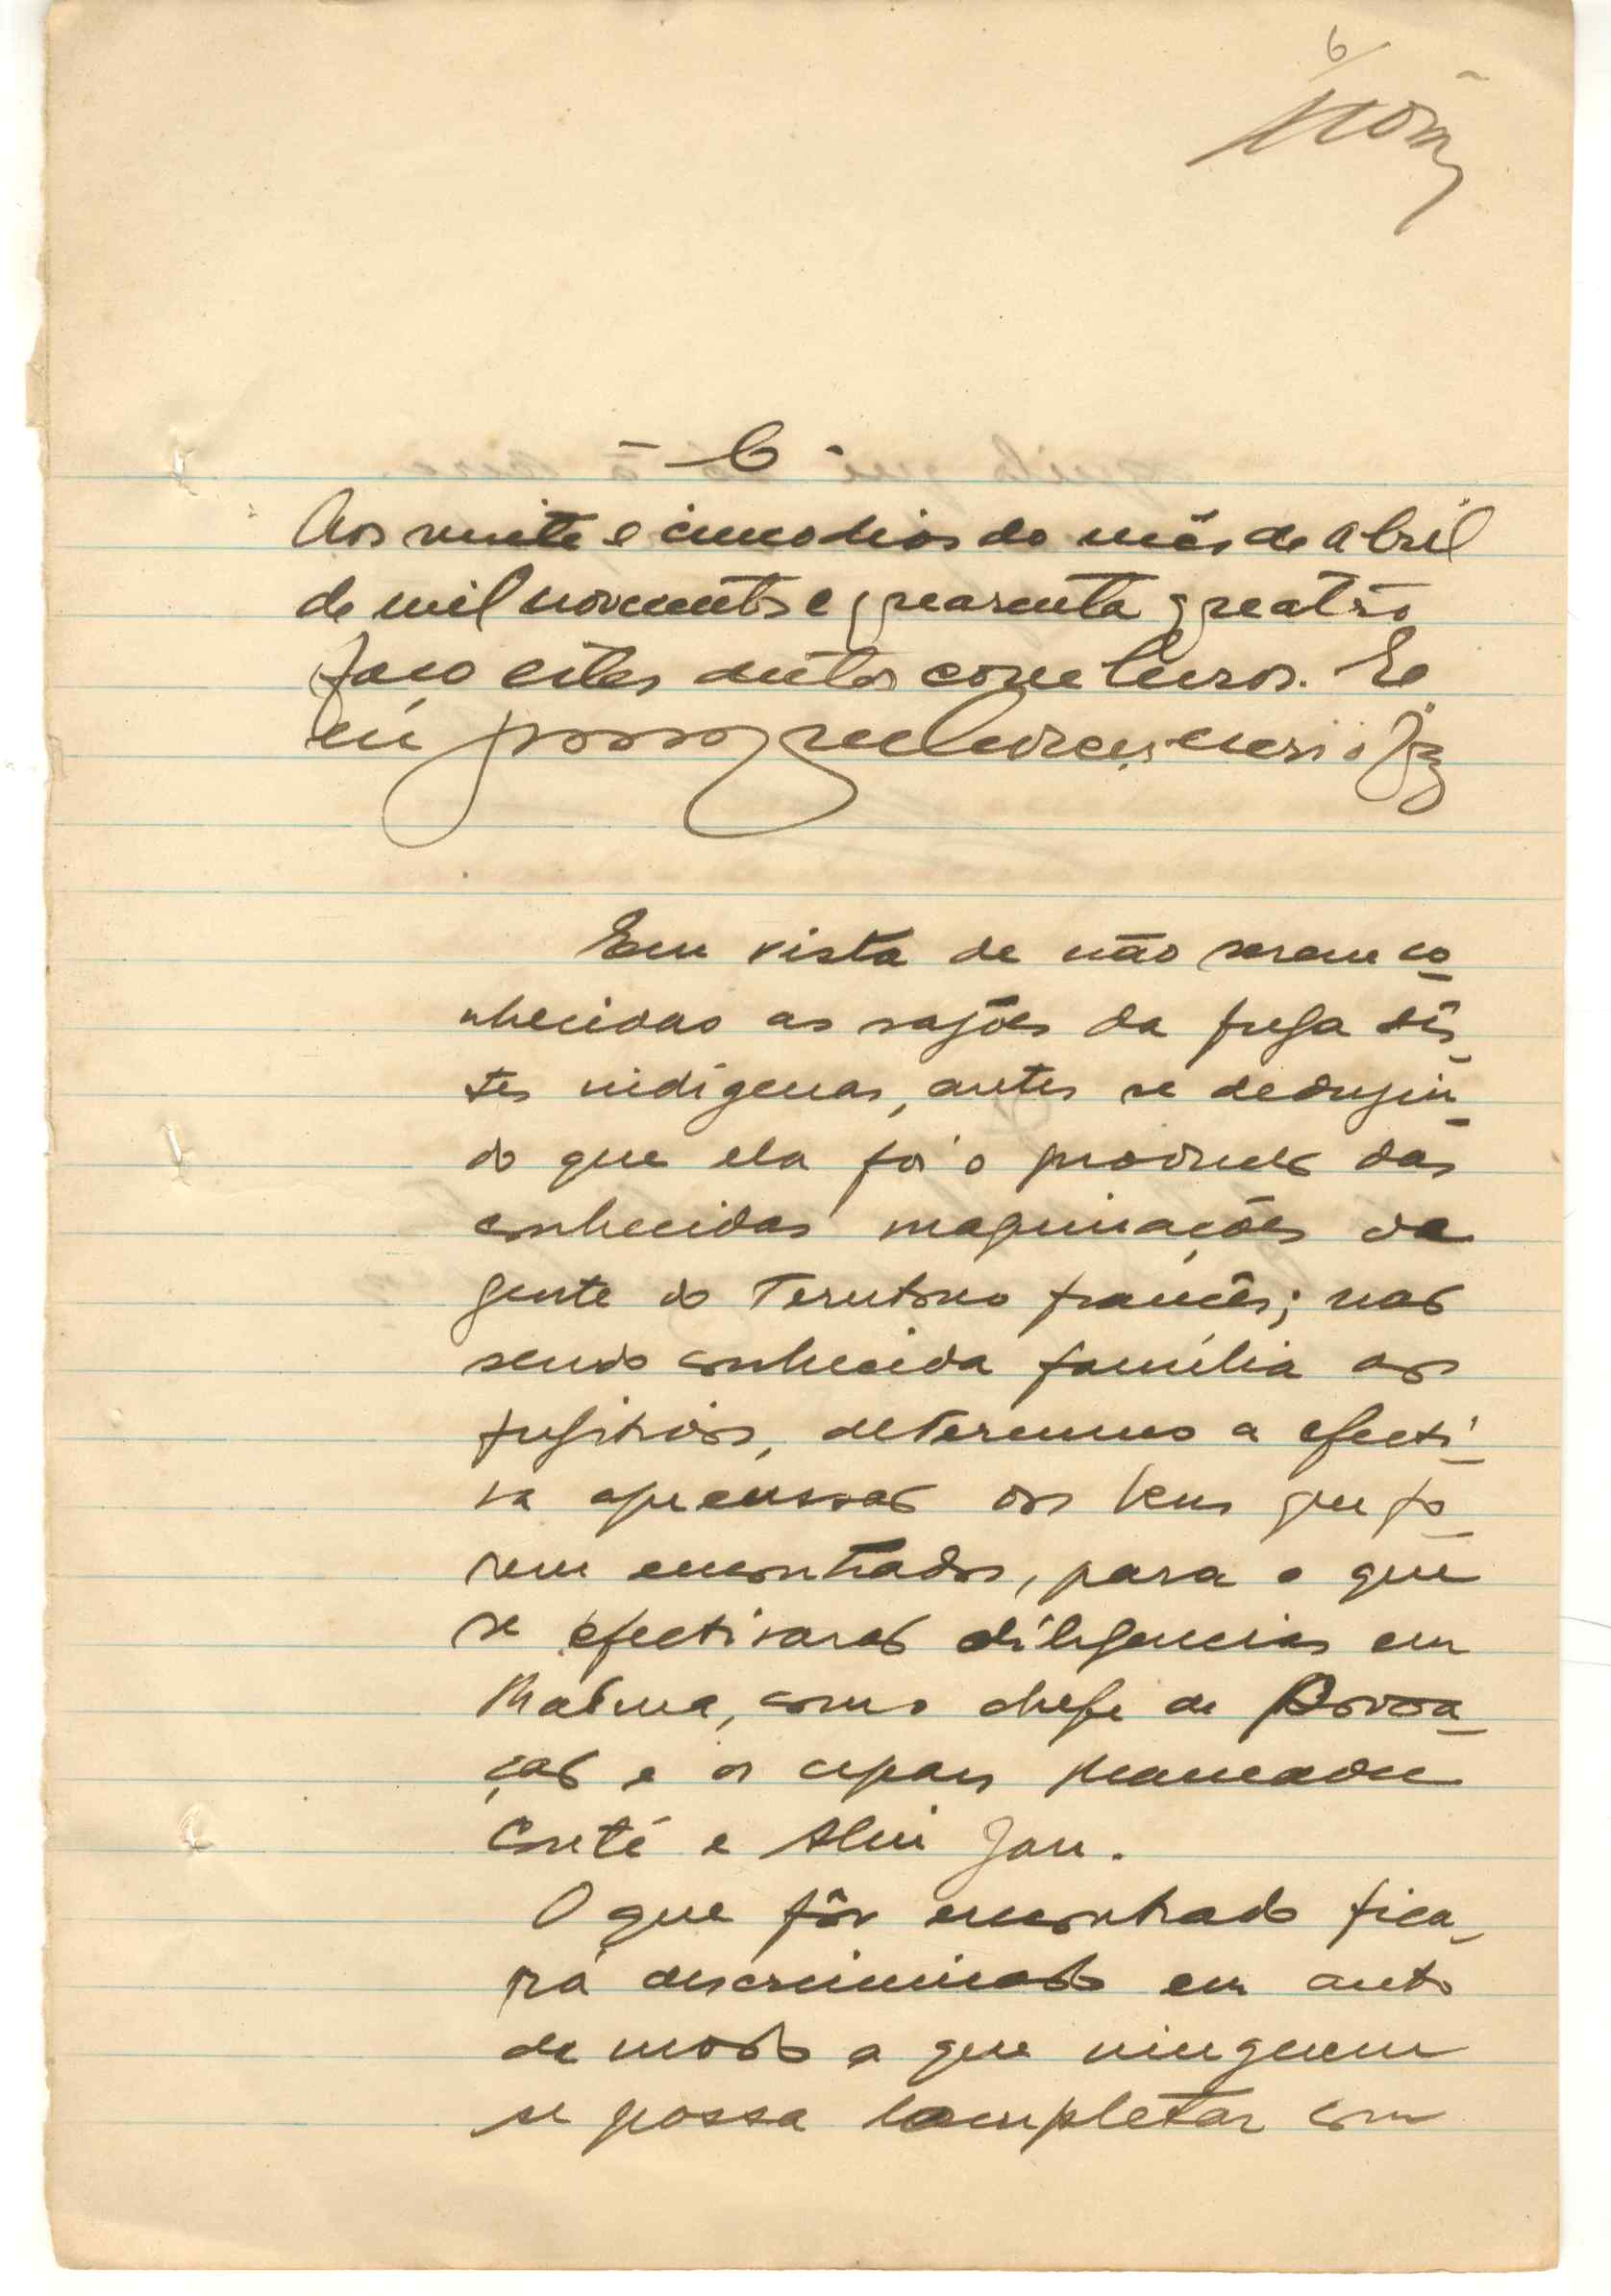 6
- C -
Aos vinte e cinco dias do mês de Abril
de mil novecentos e quarenta quatro
faço estes autos conclusos. E
eu escrivão o fiz
Em vista de não serem co_
nhecidas as razões da fuga dês_
tes indígenas, antes se deduzin_
do que ela foi o producto das
conhecidas maquinações da
gente do Territorio francês; não
sendo conhecida família aos
fugitivos, determino a efecti_
va apreensão dos bens que fo_
rem encontrados, para o que
se efectivarão diligencias em
como chefe de Povoa_
ção e os cipais Mamadu
Conté e Alui Jau.
O que fôr encontrado fica_
rá descriminado em auto
de modo a que ninguem
se possa locupletar com